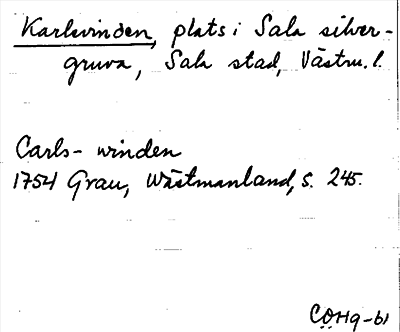 Karlsvinden, plats i Sala silver-
gruva, Sala stad, Västm. l.
Carls- winden
1754 Grau, Wästmanland, s. 245.
CÖHg-61